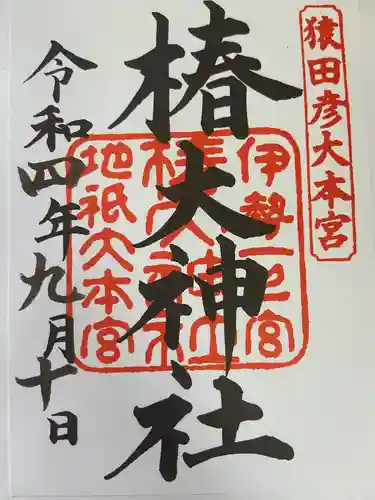 猿田彦大本宮
椿大神社
伊勢一之宮
椿大神社
地祇大本宮
令和四年九月十日